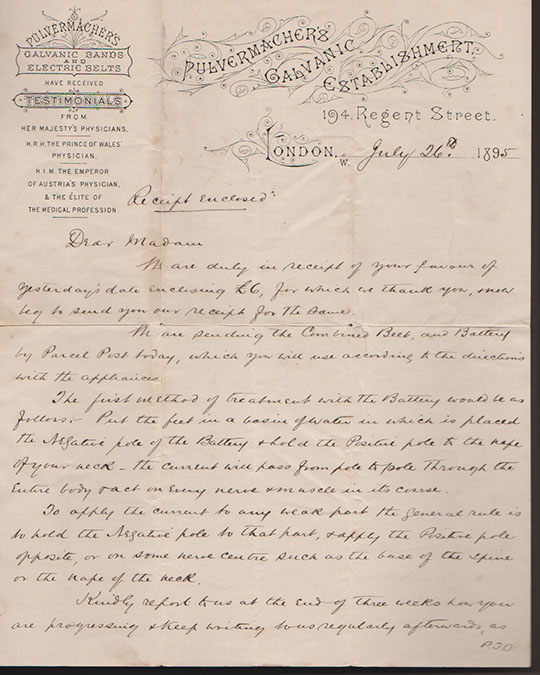 PULVERMACHER'S
GALVANIC BANDS
AND
ELECTRIC BELTS
HAVE RECEIVED
TESTIMONIALS
FROM
HER MAJESTY'S PHYSICIANS,
H.R.H. THE PRINCE OF WALES'
PHYSICIAN,
H.I.M. THE EMPEROR
OF AUSTRIA'S PHYSICIAN,
& THE ÉLITE OF
THE MEDICAL PROFESSION
PULVERMACHER'S
GALVANIC
ESTABLISHMENT,
194, Regent Street.
LONDON, W. July 26th 1895
Receipt Enclosed:
Dear Madam
We are duly in receipt of your favour of
yesterday's date enclosing £6, for which we thank you, & now
beg to send you our receipt for the same.
We are sending the Combined Belt, and Battery
by Parcel Post today, which you will use according to the directions
with the appliances.
The first method of treatment with the Battery would be as
follows:- Put the feet in a basin of water in which is placed
the Negative pole of the Battery & hold the Positive pole to the nape
of your neck - the current will pass from pole to pole through the
Entire body & act on Every nerve & muscle in its corse.
To apply the current to any weak part the general rule is
to hold the Negative pole to that part, & apply the Positive pole
opposite, or on some nerve centre such as the base of the spine
or the nape of the neck.
Kindly report to us at the End of three weeks how you
are progressing & keep writing to us regularly afterwards, as
P.T.O.